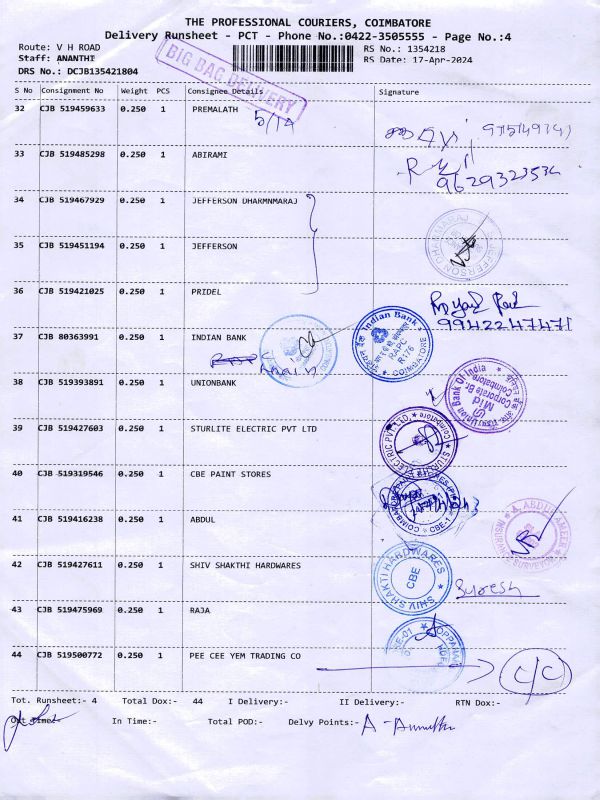 THE PROFESSIONAL COURIERS, COIMBATORE
Delivery Runsheet - PCT - Phone No.:0422-3505555 - Page No.:4
Route: V H ROAD RS No.: 1354218
Staff: ANANTHI RS Date: 17-Apr-2024
DRS No.: DCJB135421804
BIG BAG DELIVERY
S No Consignment No Weight PCS Consignee Details Signature
32 CJB 519459633 0.250 1 PREMALATH
5/14
33 CJB 519485298 0.250 1 ABIRAMI
9629323534
34 CJB 519467929 0.250 1 JEFFERSON DHARMNMARAJ
35 CJB 519451194 0.250 1 JEFFERSON
36 CJB 519421025 0.250 1 PRIDEL
9942247471
37 CJB 80363991 0.250 1 INDIAN BANK
Indian Bank
RAPC
R176
COIMBATORE
38 CJB 519393891 0.250 1 UNIONBANK
Union Bank Of India
Corporate Br.
Coimbatore
39 CJB 519427603 0.250 1 STURLITE ELECTRIC PVT LTD
STURLITE ELECTRIC PVT. LTD.
Coimbatore
40 CJB 519319546 0.250 1 CBE PAINT STORES
CBE-1
41 CJB 519416238 0.250 1 ABDUL
42 CJB 519427611 0.250 1 SHIV SHAKTHI HARDWARES
SHIV SHAKTI HARDWARES
CBE
Suresh
43 CJB 519475969 0.250 1 RAJA
44 CJB 519500772 0.250 1 PEE CEE YEM TRADING CO
C/C
Tot. Runsheet:- 4 Total Dox:- 44 I Delivery:- II Delivery:- RTN Dox:-
Out Time:- In Time:- Total POD:- Delvy Points:-